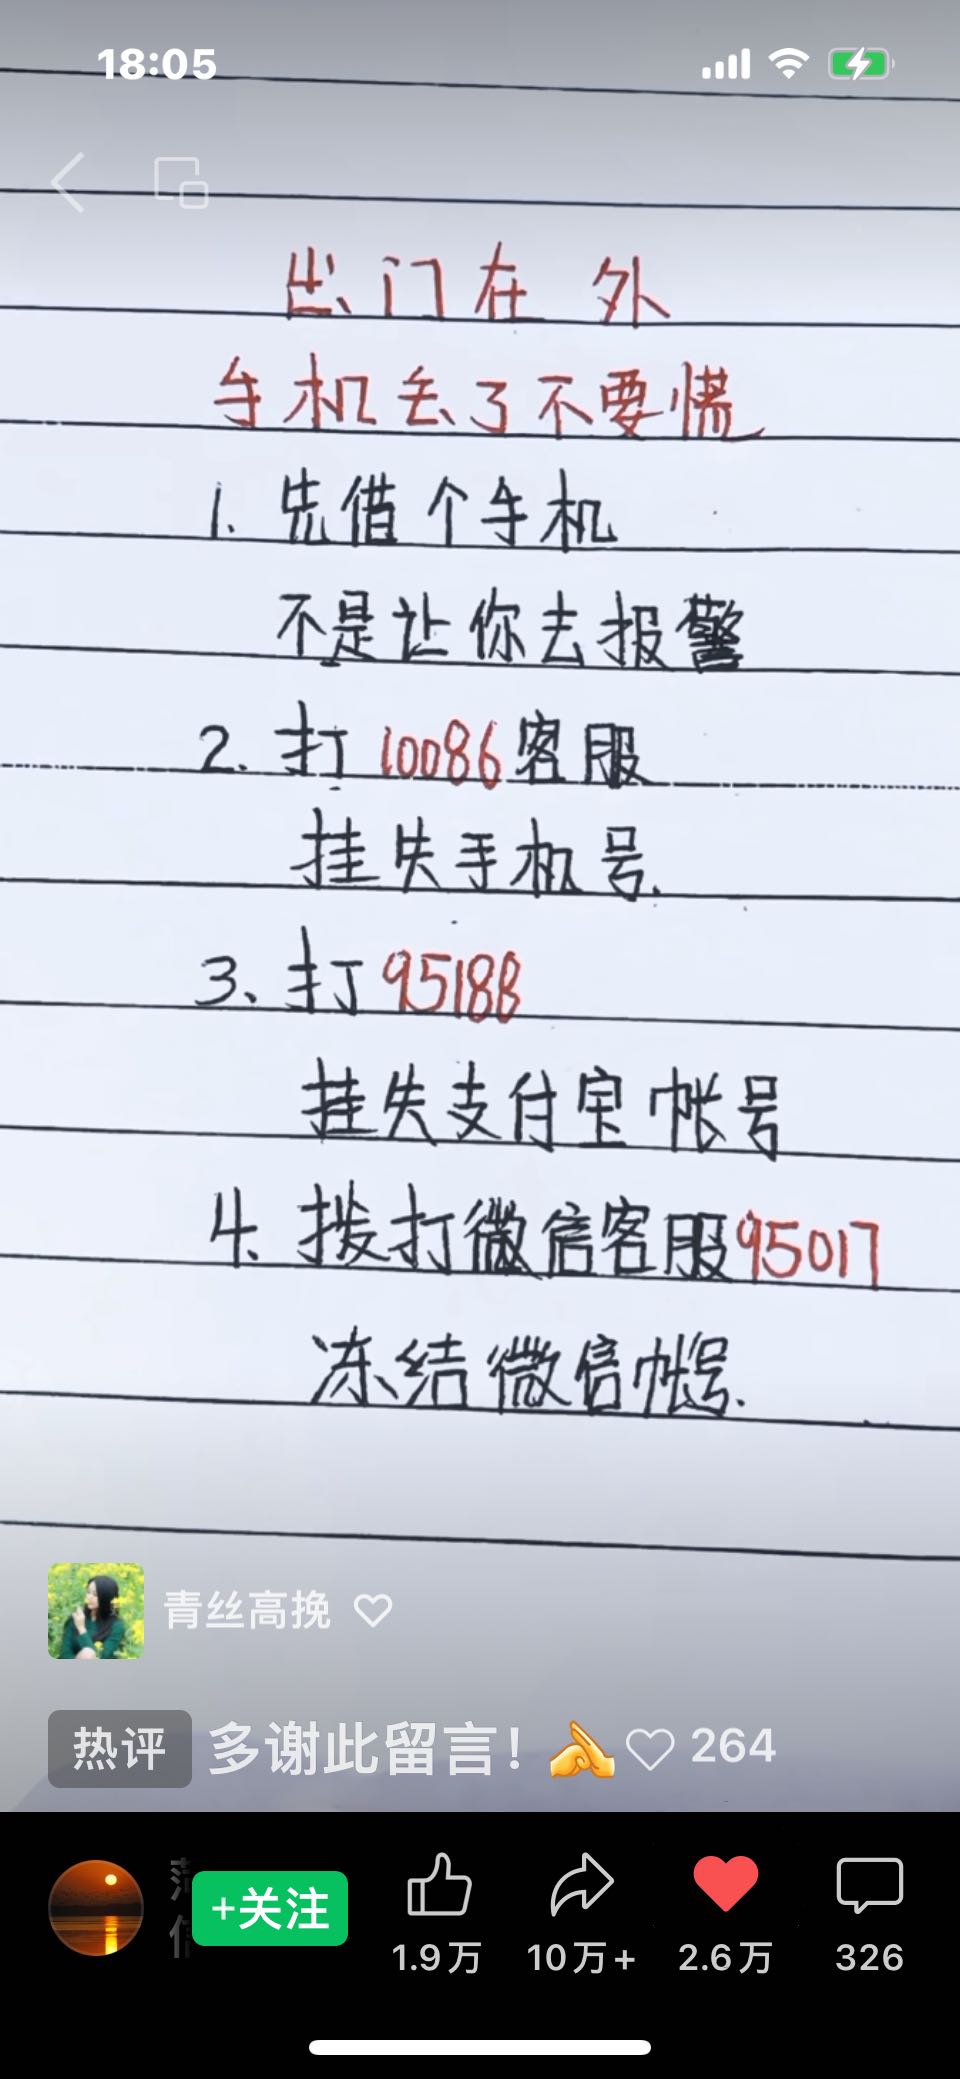 18:05
出门在外
手机丢了不要慌
1. 先借个手机
不是让你去报警
2. 打10086客服
挂失手机号.
3、打95188
挂失支付宝帐号
4. 拨打微信客服95017
冻结微信帐号.
青丝高挽
热评 多谢此留言！ 264
+关注
1.9万 10万+ 2.6万 326